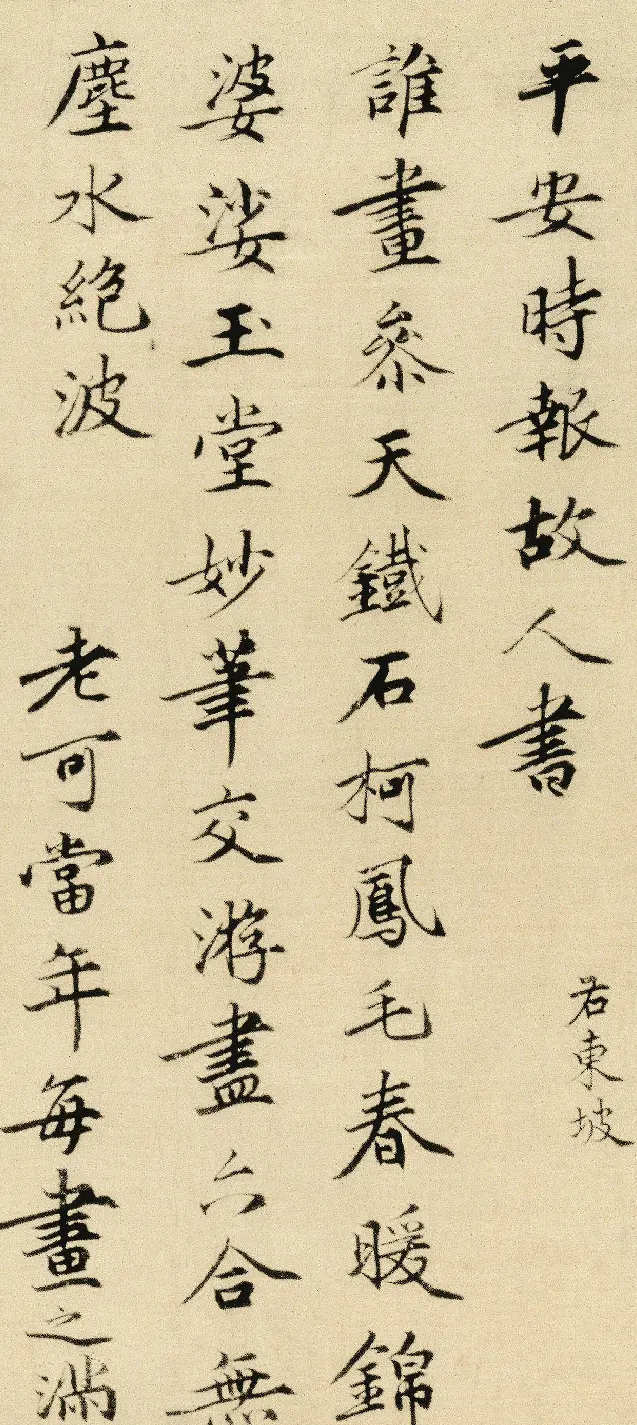 平安時報故人書
右東坡
誰畫參天鐵石柯鳳毛春暖錦
婆娑玉堂妙筆交游盡六合無
塵水絕波
老可當年每畫之滿